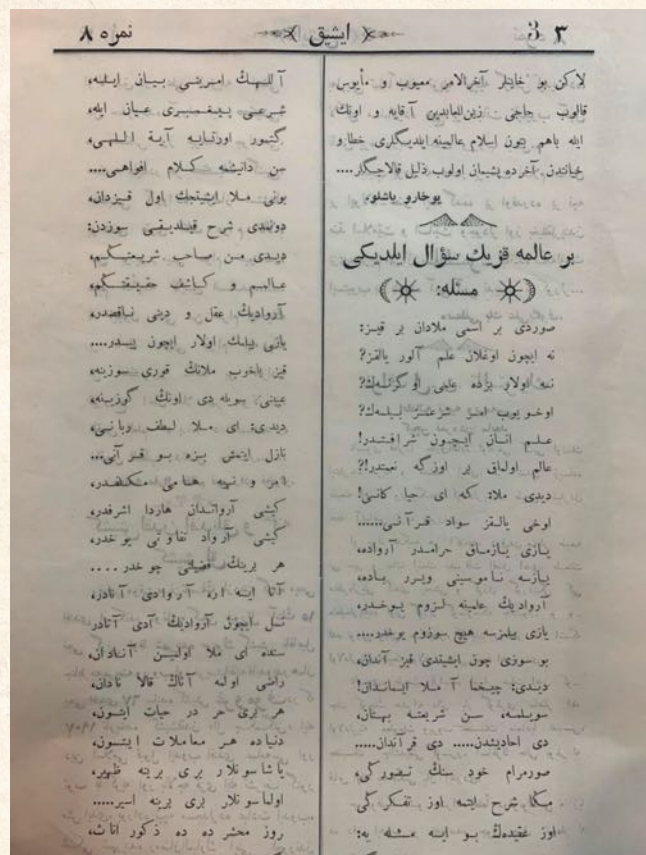 ٣ 3
ایشیق
نمره ٨
لاکن بو خاینلر آخرالامر معیوب و مأیوس
قالوب حاجی زین‌العابدین آقایه و اونڭ
ایله باهم بتون اسلام عالمینه ایلدیگلری خطا و
خیانتدن آخرده پشیمان اولوب ذلیل قالاجگلر....
یوخارو باشلو.
بر عالمه قزیڭ سؤال ایلدیکی
مسئله:
صوردی بر اسمی ملادان بر قیز:
نه ایچون اوغلان علم آلور یالقز?
ننه اولار بزده علمی اوگرنسه‌ڭ?
اوخویوب امز شرعمز بیلسه‌ڭ?
علم انسان ایچون شرافتدر!
عالم اولماق بر اوزگه نعمتدر!?
دیدی ملا: که ای حیا کانی!
اوخی یالقز سواد قرآنی......
یازی یازماق حرامدر آرواده،
یازسه ناموسینی ویرر باده،
آروادیڭ علمینه لزوم یوخدر،
یازی بیلمزسه هیچ سوزوم یوخدر....
بو سوزی چون ایشیتدی قیز آندان،
دیدی: چیخما آ ملا ایماندان!
سویلمه، سن شریعته بهتان،
دی احادیثدن..... دی قرآندان.....
صورمرام خود سنڭ تصورڭی،
مڭا شرح ایتمه اوز تفکرڭی
اوز عقیده‌ڭ بو ایسه مسئله یه:
آللهڭ امرینی بیان ایله،
شرعی پیغمبری عیان ایله،
گتیور اورتایه آیة اللهی،
سن دانیشمه کلام افواهی....
بونی ملا ایشیتجك اول قیزدان،
دوندی شرح قیلدیقی سوزدن:
دیدی من صاحب شریعتڭم،
عالمم و کاشف حقیقتڭم،
آروادیڭ عقل و دینی ناقصدر،
یازی بیلمك اولار ایچون پسدر....
قیز باخوب ملانڭ قوری سوزینه،
عینی سویله دی اونڭ گوزینه،
دیدی: ای ملا لطف ربانی،
نازل ایتمش بزه بو قرآنی...
امر و نهیه هامی مکلفدر،
کیشی آرواتدان هاردا اشرفدر،
کیشی آرواد تفاوتی یوخدر،
هر برینڭ فضیلتی چوخدر....
آتا ایسه اره آروادی آنادر،
نسل ایچون آروادیڭ آدی آنادر
سنده ای ملا اولمیسن آنادان،
راضی اولمه آناڭ قالا نادان،
هر بری حر در حیات ایتسون،
دنیاده هر معاملات ایتسون،
یاشاسونلار بری برینه ظهیر،
اولماسونلار بری برینه اسیر.....
روز محشر ده ده ذکور اناث،